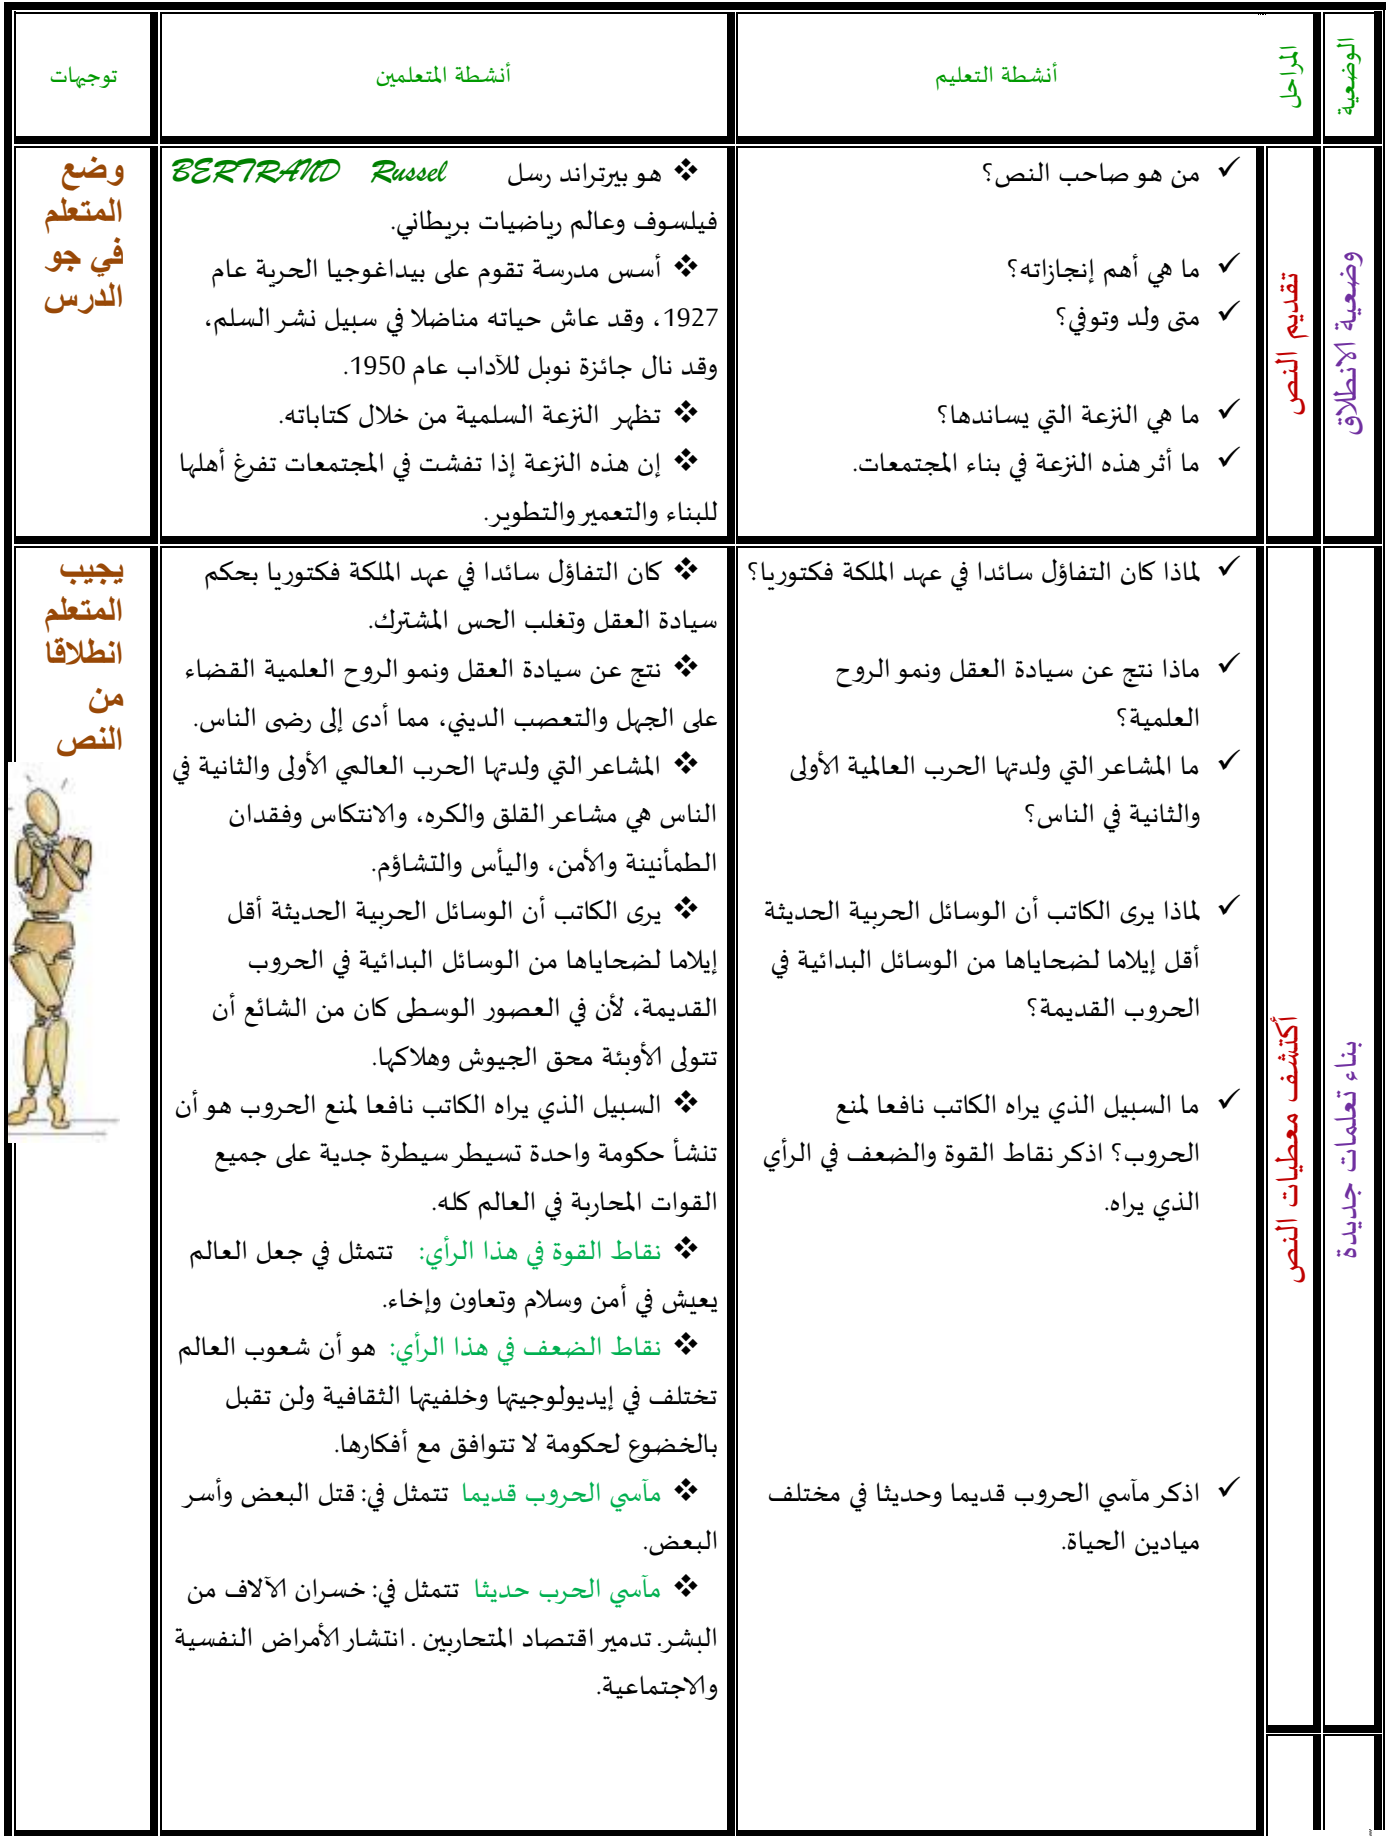 الوضعية
المراحل
أنشطة التعليم
أنشطة المتعلمين
توجيهات
وضعية الانطلاق
تقديم النص
✓ من هو صاحب النص؟
✓ ما هي أهم إنجازاته؟
✓ متى ولد وتوفي؟
✓ ما هي النزعة التي يساندها؟
✓ ما أثر هذه النزعة في بناء المجتمعات.
❖ هو بيرتراند رسل BERTRAND Russel
فيلسوف وعالم رياضيات بريطاني.
❖ أسس مدرسة تقوم على بيداغوجيا الحرية عام
1927، وقد عاش حياته مناضلا في سبيل نشر السلم،
وقد نال جائزة نوبل للآداب عام 1950.
❖ تظهر النزعة السلمية من خلال كتاباته.
❖ إن هذه النزعة إذا تفشت في المجتمعات تفرغ أهلها
للبناء والتعمير والتطوير.
وضع
المتعلم
في جو
الدرس
بناء تعلمات جديدة
أكتشف معطيات النص
✓ لماذا كان التفاؤل سائدا في عهد الملكة فكتوريا؟
✓ ماذا نتج عن سيادة العقل ونمو الروح
العلمية؟
✓ ما المشاعر التي ولدتها الحرب العالمية الأولى
والثانية في الناس؟
✓ لماذا يرى الكاتب أن الوسائل الحربية الحديثة
أقل إيلاما لضحاياها من الوسائل البدائية في
الحروب القديمة؟
✓ ما السبيل الذي يراه الكاتب نافعا لمنع
الحروب؟ اذكر نقاط القوة والضعف في الرأي
الذي يراه.
✓ اذكر مآسي الحروب قديما وحديثا في مختلف
ميادين الحياة.
❖ كان التفاؤل سائدا في عهد الملكة فكتوريا بحكم
سيادة العقل وتغلب الحس المشترك.
❖ نتج عن سيادة العقل ونمو الروح العلمية القضاء
على الجهل والتعصب الديني، مما أدى إلى رضى الناس.
❖ المشاعر التي ولدتها الحرب العالمي الأولى والثانية في
الناس هي مشاعر القلق والكره، والانتكاس وفقدان
الطمأنينة والأمن، واليأس والتشاؤم.
❖ يرى الكاتب أن الوسائل الحربية الحديثة أقل
إيلاما لضحاياها من الوسائل البدائية في الحروب
القديمة، لأن في العصور الوسطى كان من الشائع أن
تتولى الأوبئة محق الجيوش وهلاكها.
❖ السبيل الذي يراه الكاتب نافعا لمنع الحروب هو أن
تنشأ حكومة واحدة تسيطر سيطرة جدية على جميع
القوات المحاربة في العالم كله.
❖ نقاط القوة في هذا الرأي: تتمثل في جعل العالم
يعيش في أمن وسلام وتعاون وإخاء.
❖ نقاط الضعف في هذا الرأي: هو أن شعوب العالم
تختلف في إيديولوجيتها وخلفيتها الثقافية ولن تقبل
بالخضوع لحكومة لا تتوافق مع أفكارها.
❖ مآسي الحروب قديما تتمثل في: قتل البعض وأسر
البعض.
❖ مآسي الحرب حديثا تتمثل في: خسران الآلاف من
البشر. تدمير اقتصاد المتحاربين . انتشار الأمراض النفسية
والاجتماعية.
يجيب
المتعلم
انطلاقا
من
النص